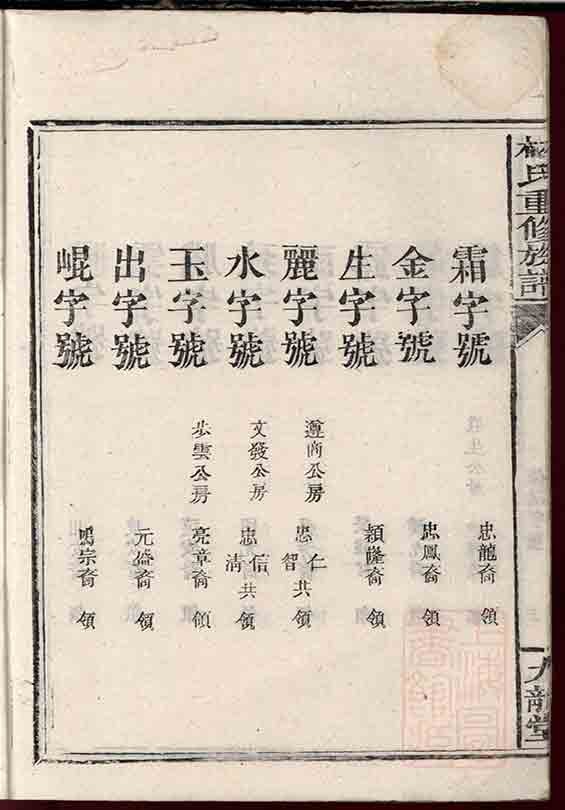 林氏重修族譜
九龍堂
霜字號 忠龍裔 領
金字號 忠鳳裔 領
生字號 穎隆裔 領
麗字號 遵商公房 忠仁智共 領
水字號 文發公房 忠信清共 領
玉字號 步雲公房 亮章裔 領
出字號 元盛裔 領
崐字號 鳴宗裔 領